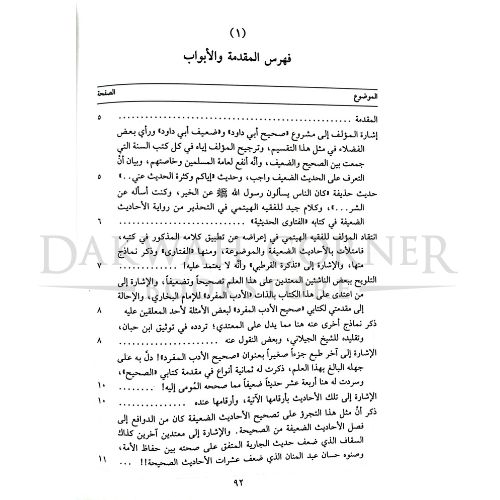 (١)
فهرس المقدمة والأبواب
الموضوع الصفحة
المقدمة ............................................ ٥
إشارة المؤلف إلى مشروع «صحيح أبي داود» و«ضعيف أبي داود» ورأي بعض
الفضلاء في مثل هذا التقسيم، وترجيح المؤلف إياه في كل كتب السنة التي
جمعت بين الصحيح والضعيف، وأنّه أنفع لعامة المسلمين وخاصتهم، وبيان أنّ
التعرف على الحديث الضعيف واجب، وحديث «إياكم وكثرة الحديث عني..» ٥
حديث حذيفة «كان الناس يسألون رسول الله ﷺ عن الخير، وكنت أسأله عن
الشر...»، وكلام جيد للفقيه الهيتمي في التحذير من رواية الأحاديث
الضعيفة في كتابه «الفتاوى الحديثية» ............ ٦
انتقاد المؤلف للفقيه الهيتمي في إعراضه عن تطبيق كلامه المذكور في كتبه،
فامتلأت بالأحاديث الضعيفة والموضوعة، ومنها «الفتاوى» وذكر نماذج
منها، والإشارة إلى «تذكرة القرطبي» وأنّه لا يعتمد عليه! ............ ٧
التلويح ببعض الناشئين المعتدين على هذا العلم تصحيحاً وتضعيفاً، والإشارة إلى
من اعتدى على هذا الكتاب بالذات «الأدب المفرد» للإمام البخاري، والإحالة
إلى مقدمتي لكتابي «صحيح الأدب المفرد» لبعض الأمثلة لأحد المعلقين عليه ٨
ذكر نماذج أخرى عنه هنا مما يدل على المعتدي؛ تردده في توثيق ابن حبان،
وتقليده للشيخ الجيلاني، وبعض النقول عنه ............ ٨
الإشارة إلى آخر طبع جزءاً صغيراً بعنوان «صحيح الأدب المفرد»! دلّ به على
جهله البالغ بهذا العلم، ذكرت له ثمانية أنواع في مقدمة كتابي «الصحيح»،
وسردت له هنا أربعة عشر حديثاً ضعيفاً مما صححه المُومى إليه! ............ ١٠
الإشارة إلى تلك الأحاديث بأرقامها الآتية، وأرقامها عنده ............ ١٠
ذكر أنّ مثل هذا التجرؤ على تصحيح الأحاديث الضعيفة كان من الدوافع إلى
فصل الأحاديث الضعيفة من الصحيحة. والإشارة إلى معتدين آخرين كذاك
السقاف الذي ضعف حديث الجارية المتفق على صحته بين حفاظ الأمة،
وصنوه حسان عبد المنان الذي ضعف عشرات الأحاديث الصحيحة!! ... ١١
٩٢
DAKWAH CORNER